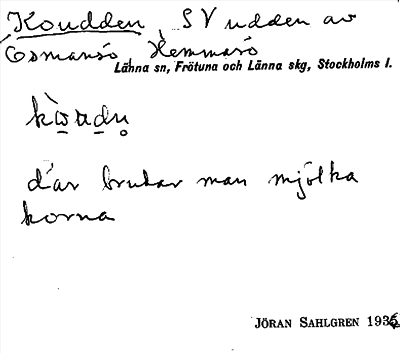 Koudden, SV udden av
Osmansö, Hemmarö
Länna sn, Frötuna och Länna skg, Stockholms l.
där brukar man mjölka
korna
JÖRAN SAHLGREN 1935